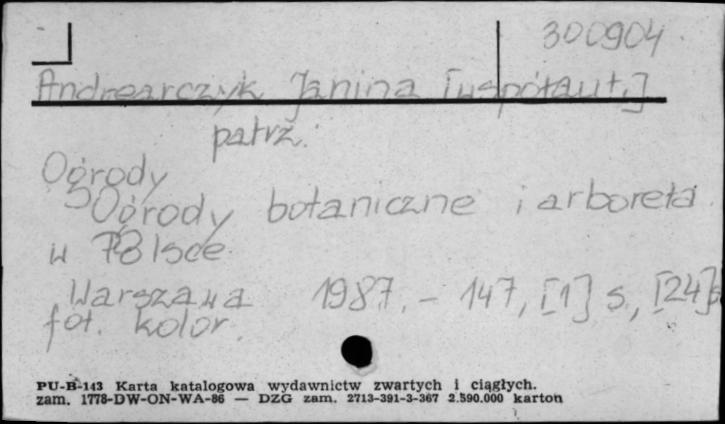 300904
Andrearczyk Janina [współaut.]
patrz:
Ogrody
Ogrody botaniczne i arboreta
w Polsce
Warszawa 1987. - 147, [1] s, [24] s
fot. kolor.
PU-B-143 Karta katalogowa wydawnictw zwartych i ciągłych.
zam. 1778-DW-ON-WA-86 — DZG zam. 2713-391-3-367 2.590.000 karton